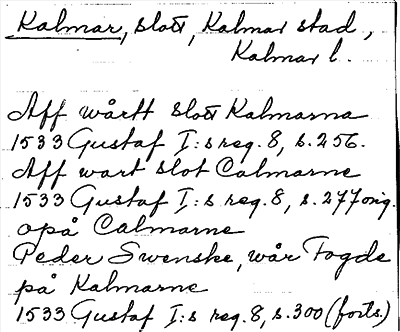 Kalmar, slott, Kalmar stad,
Kalmar l.
Aff wårtt slott Kalmarna
1533 Gustaf I:s reg. 8, s. 256.
Aff wart slot Calmarne
1533 Gustaf I:s reg. 8, s. 277 orig.
opå Calmarne
Peder Swenske, wår Fogde
på Kalmarne
1533 Gustaf I:s reg. 8, s. 300 (forts.)